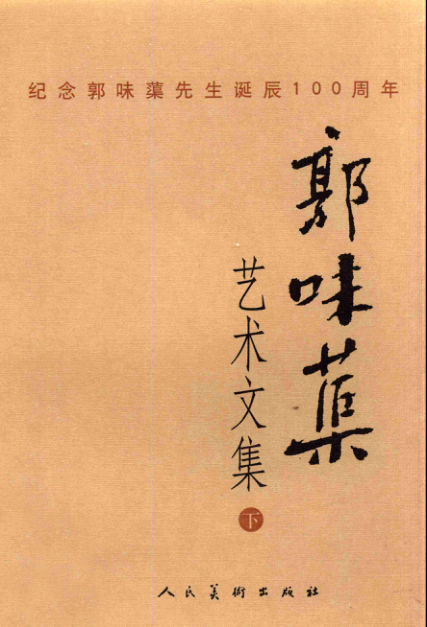 纪念郭味蕖先生诞辰100周年
郭味蕖
艺术文集
下
人民美術出版社